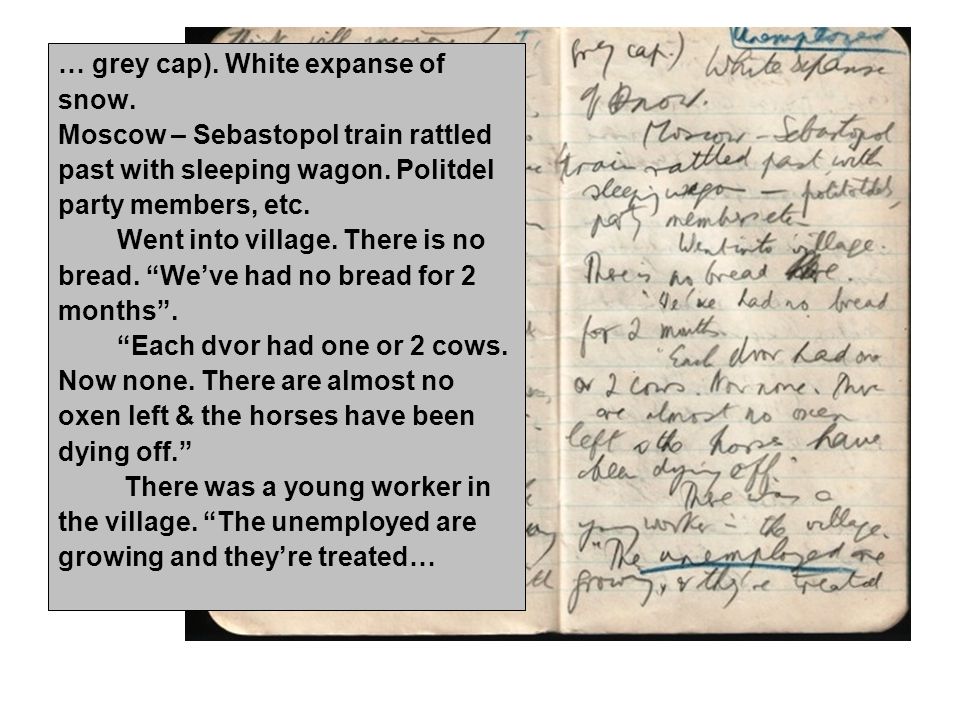 … grey cap). White expanse of
snow.
Moscow – Sebastopol train rattled
past with sleeping wagon. Politdel
party members, etc.
Went into village. There is no
bread. “We’ve had no bread for 2
months”.
“Each dvor had one or 2 cows.
Now none. There are almost no
oxen left & the horses have been
dying off.”
There was a young worker in
the village. “The unemployed are
growing and they’re treated…
Unemployed
grey cap.) White expanse
of snow.
Moscow – Sebastopol
train rattled past with
sleeping wagon –
party members etc –
Went into village.
There is no bread here.
"We've had no bread
for 2 months.
"Each dvor had one
or 2 cows. Now none. There
are almost no oxen
left & the horses have
been dying off."
There was a
young worker in the village.
"The unemployed are
growing, & they're treated